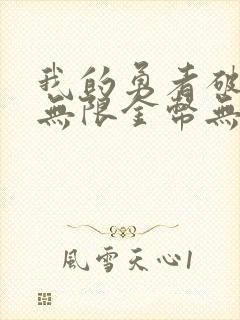 我的勇者破
無限金幣無
風雪天心1